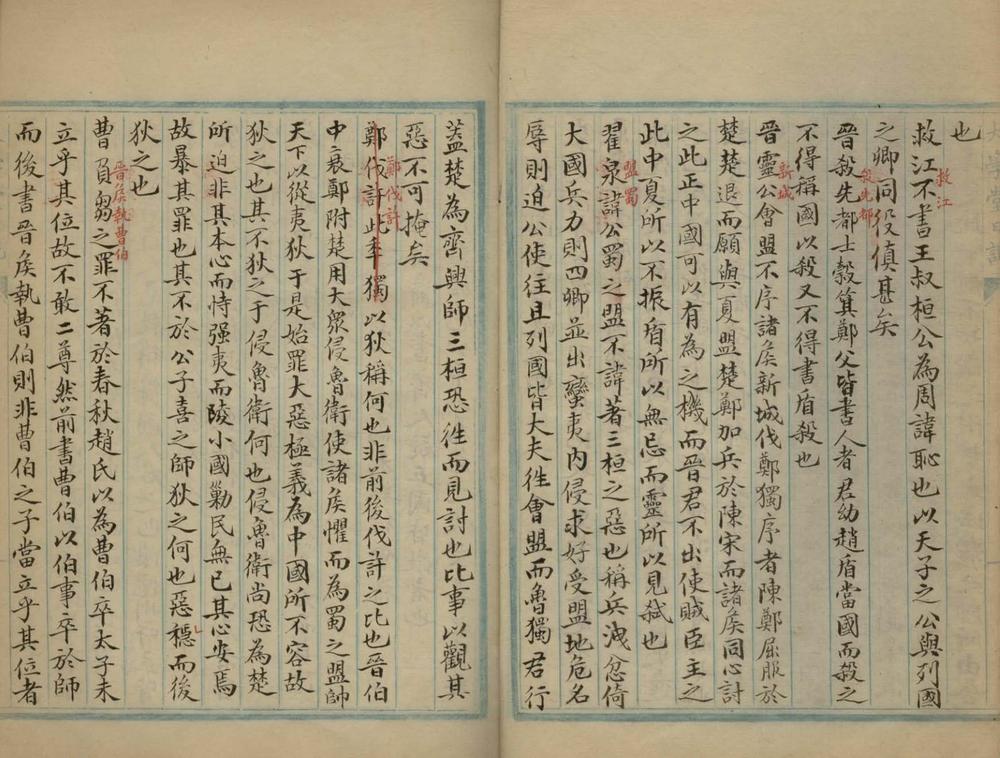 也
救江不書王叔桓公為周諱恥也以天子之公與列國
救江
之卿同役傎甚矣
晉殺先都士縠箕鄭父皆書人者君幼趙盾當國而殺之
殺先都
不得稱國以殺又不得書盾殺也
晉靈公會盟不序諸矦新城伐鄭獨序者陳鄭屈服於
新城
楚楚退而願與夏盟楚鄭加兵於陳宋而諸矦同心討
之此正中國可以有為之機而晉君不出使賊臣主之
此中夏所以不振盾所以無忌而靈所以見弒也
翟泉諱公蜀之盟不諱著三桓之惡也稱兵洩忿倚
盟蜀
大國兵力則四卿並出蠻夷內侵求好受盟地危名
辱則迫公使往且列國皆大夫徃會盟而魯獨君行
蓋楚為齊興師三桓恐徃而見討也比事以觀其
惡不可掩矣
鄭伐許此年獨以狄稱何也非前後伐許之比也晉伯
鄭伐許
中衰鄭附楚用大衆侵魯衛使諸矦懼而為蜀之盟帥
天下以從夷狄于是始罪大惡極義為中國所不容故
狄之也其不狄之于侵魯衛何也侵魯衛尚恐為楚
所迫非其本心而恃强夷而陵小國勦民無已其心安焉
故暴其罪也其不於公子喜之師狄之何也惡穩而後
狄之也
曹負芻之罪不著於春秋趙氏以為曹伯卒太子未
晉矦執曹伯
立乎其位故不敢二尊然前書曹伯以伯事卒於師
而後書晉矦執曹伯則非曹伯之子當立乎其位者